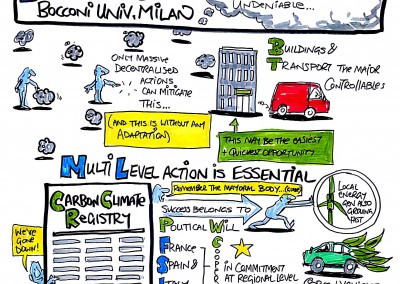 BOCCONI UNIV. MILAN
UNDENIABLE...
ONLY MASSIVE
DECENTRALISED
ACTIONS
CAN MITIGATE
THIS...
BUILDINGS &
TRANSPORT THE MAJOR
CONTROLLABLES
(AND THIS IS WITHOUT ANY
ADAPTATION)
THIS MAY BE THE EASIEST
+ QUICKEST OPPORTUNITY
MULTI LEVEL ACTION IS ESSENTIAL
REMEMBER THE MAYORAL BODY...
CARBON CLIMATE
REGISTRY
SUCCESS BELONGS TO
POLITICAL WILL
LOCAL
ENERGY
GEN ALSO
GROWING
FAST
WE'VE
GONE
DOWN!
FRANCE
SPAIN &
ITALY
IN COMMITMENT
AT REGIONAL LEVEL